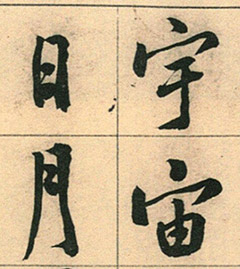 宇宙
日月